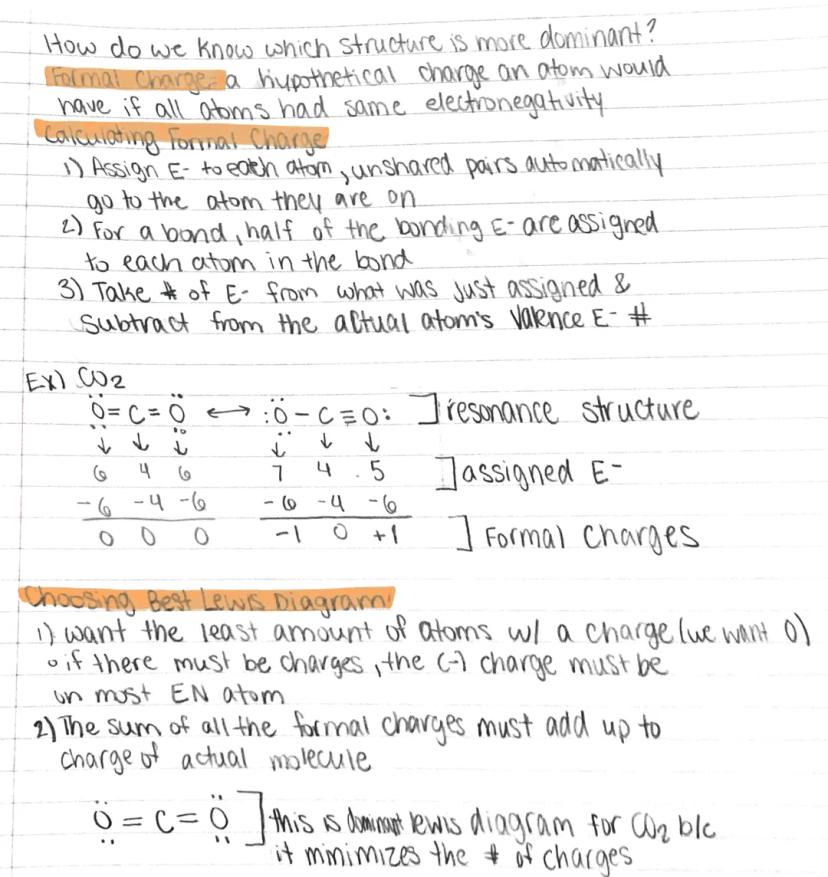 How do we know which structure is more dominant?
Formal Charge = a hypothetical charge an atom would
have if all atoms had same electronegativity
Calculating Formal Charge
1) Assign E- to each atom, unshared pairs automatically
go to the atom they are on
2) For a bond, half of the bonding E- are assigned
to each atom in the bond
3) Take # of E- from what was just assigned &
subtract from the actual atom's valence E- #
Ex) CO2
Ö=C=Ö ⟷ :Ö-C≡O: ] resonance structure
↓ ↓ ↓ ↓ ↓ ↓
6 4 6 7 4 5 ] assigned E-
-6 -4 -6 -6 -4 -6
0 0 0 -1 0 +1 ] Formal Charges
Choosing Best Lewis Diagram
1) want the least amount of atoms w/ a charge (we want 0)
o if there must be charges, the (-) charge must be
on most EN atom
2) The sum of all the formal charges must add up to
charge of actual molecule
Ö=C=Ö ] this is dominant lewis diagram for CO2 b/c
it minimizes the # of charges